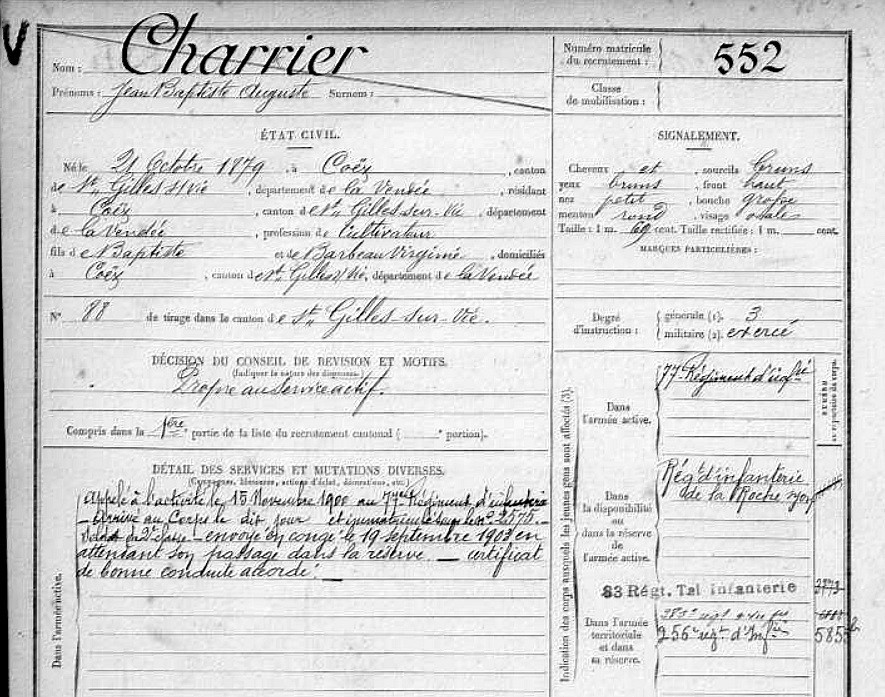 V
Nom : Charrier
Prénoms : Jean Baptiste Auguste Surnom :
Numéro matricule du recrutement : 552
Classe de mobilisation :
ÉTAT CIVIL.
Né le 21 Octobre 1879, à Coëx, canton
de St Gilles s/ Vie, département de la Vendée, résidant
à Coëx, canton de St Gilles-sur-Vie, département
de la Vendée, profession de Cultivateur
fils de Baptiste et de Barbeau Virginie, domiciliés
à Coëx, canton de St Gilles s/ Vie, département de la Vendée
N° 88 de tirage dans le canton de St Gilles-sur-Vie.
SIGNALEMENT.
Cheveux et, sourcils bruns
yeux bruns, front haut
nez petit, bouche grosse
menton rond, visage ovale
Taille : 1 m. 69 cent. Taille rectifiée : 1 m. cent.
MARQUES PARTICULIÈRES :
Degré d'instruction :
générale (1). 3
militaire (2). exercé
DÉCISION DU CONSEIL DE REVISION ET MOTIFS.
(Indiquer la nature des dispenses.)
Propre au Service actif.
Compris dans la 1ère partie de la liste du recrutement cantonal ( e portion).
DÉTAIL DES SERVICES ET MUTATIONS DIVERSES.
(Campagnes, blessures, actions d'éclat, décorations, etc.)
Dans l'armée active.
Appelé à l'activité le 15 Novembre 1900 au 77ème Régiment d'infanterie
- Arrivé au Corps le dit jour et immatriculé sous le n° 2575. -
Soldat de 2e classe - envoyé en congé le 19 septembre 1903 en
attendant son passage dans la réserve. - certificat
de bonne conduite accordé. -
Indication des corps auxquels les jeunes gens sont affectés (3).
NUMÉRO au répertoire du corps.
Dans l'armée active.
77e Régiment d'infrie
Dans la disponibilité ou dans la réserve de l'armée active.
Régt d'infanterie
de la Roche s/ Yon
83 Régt. Tal Infanterie
Dans l'armée territoriale et dans sa réserve.
256e régt d'Infie 5855